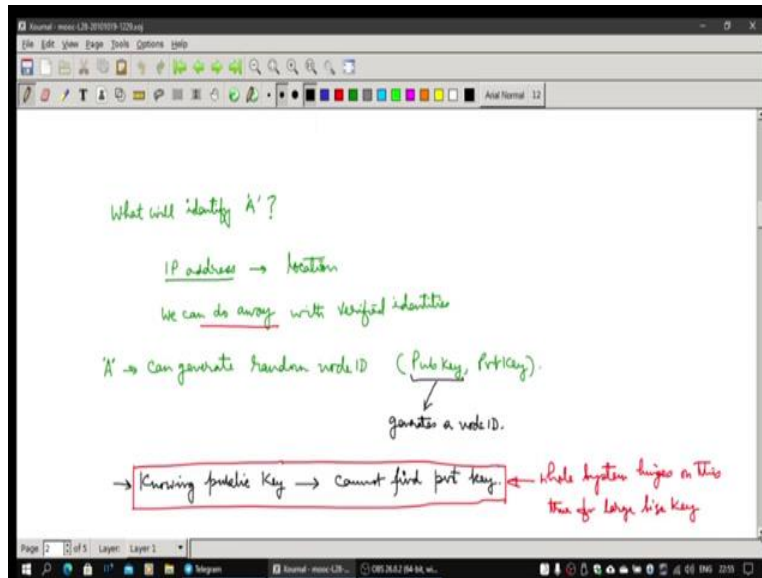 Xournal - mooc-L28-20101019-1229.xoj
File Edit View Page Tools Options Help
Arial Normal 12
What will identify 'A'?
IP address → location
We can do away with verified identities
'A' → can generate random node ID (Pub key, Prvt Key).
generates a node ID.
→ Knowing public key → cannot find pvt key. ← whole system hinges on this
true for large size key
Page 2 of 5 Layer: Layer 1
Telegram Xournal - mooc-L28-... OBS 26.0.2 (64-bit, wi... ENG 22:55